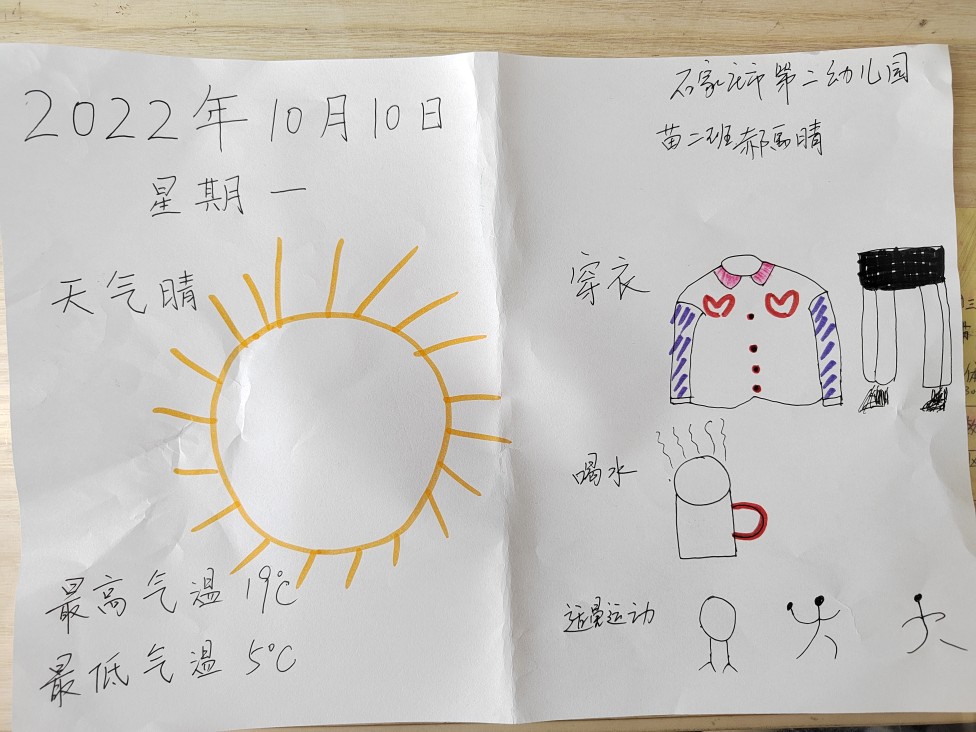 2022年10月10日
星期一
天气晴
最高气温 19℃
最低气温 5℃
石家庄市第二幼儿园
苗二班
穿衣
喝水
适量运动